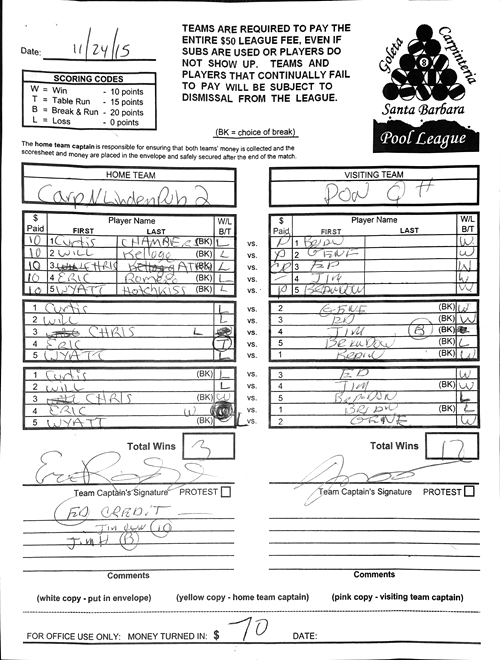 Date: 11/24/15
TEAMS ARE REQUIRED TO PAY THE
ENTIRE $50 LEAGUE FEE, EVEN IF
SUBS ARE USED OR PLAYERS DO
NOT SHOW UP. TEAMS AND
PLAYERS THAT CONTINUALLY FAIL
TO PAY WILL BE SUBJECT TO
DISMISSAL FROM THE LEAGUE.
Goleta
Carpinteria
8
Santa Barbara
Pool League
SCORING CODES
W = Win - 10 points
T = Table Run - 15 points
B = Break & Run - 20 points
L = Loss - 0 points
(BK = choice of break)
The home team captain is responsible for ensuring that both teams' money is collected and the
scoresheet and money are placed in the envelope and safely secured after the end of the match.
HOME TEAM
VISITING TEAM
Carp N LindenPub 2
POW
$ Paid Player Name FIRST LAST W/L B/T
$ Paid Player Name FIRST LAST W/L B/T
10 1 Curtis CHAMBERS (BK) L vs. P 1 W
10 2 WILL Kellogg (BK) L vs. P 2 GENE W
10 3 CHRIS (BK) L vs. 3 ED W
10 4 ERIC Romero (BK) L vs. 4 Jim W
10 5 WYATT Hotchkiss (BK) L vs. P 5 W
1 Curtis L vs. 2 GENE (BK) W
2 WILL L vs. 3 (BK) W
3 CHRIS L vs. 4 Jim B (BK)
4 ERIC T vs. 5 (BK) L
5 WYATT L vs. 1 (BK) W
1 Curtis (BK) L vs. 3 ED W
2 WILL (BK) L vs. 4 Jim W
3 CHRIS (BK) W vs. 5 L
4 ERIC W (BK) vs. 1 L
5 WYATT (BK) L vs. 2 GENE W
Total Wins 3
Total Wins 12
Team Captain's Signature PROTEST
Team Captain's Signature PROTEST
CREDIT -
Jim 10
Jim H B
Comments
Comments
(white copy - put in envelope) (yellow copy - home team captain) (pink copy - visiting team captain)
FOR OFFICE USE ONLY: MONEY TURNED IN: $ 70 DATE: